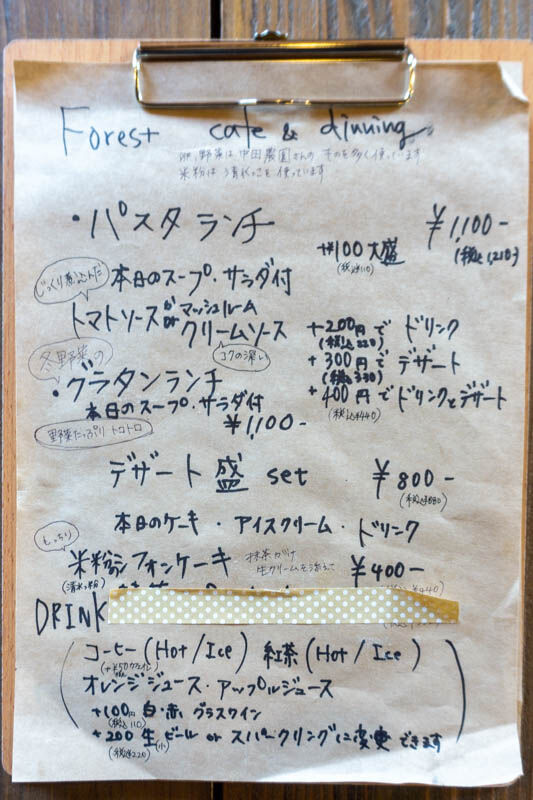 Forest cafe & dinning
野菜は、中田農園さんの ものを多く使っています
米粉は を使っています
・パスタランチ ¥1,100-
(税込1,210)
+¥100 大盛
(税込110)
じっくり煮込んだ
本日のスープ・サラダ付
トマトソース or マッシュルームクリームソース
コクの深い
+200円で ドリンク
(税込220)
+300円で デザート
(税込330)
+400円で ドリンクとデザート
(税込¥440)
冬野菜の
・グラタンランチ
本日のスープ・サラダ付
¥1,100-
野菜たっぷりトロトロ
デザート盛 set ¥800-
(税込¥880)
本日のケーキ・アイスクリーム・ドリンク
もっちり
米粉シフォンケーキ 抹茶がけ
生クリームを添えて
¥400-
¥440)
DRINK
コーヒー (Hot/Ice) 紅茶 (Hot/Ice)
オレンジジュース・アップルジュース
+100円 白・赤 グラスワイン
(税込110)
+200 生ビール(小) or スパークリングに変更できます
(税込220)